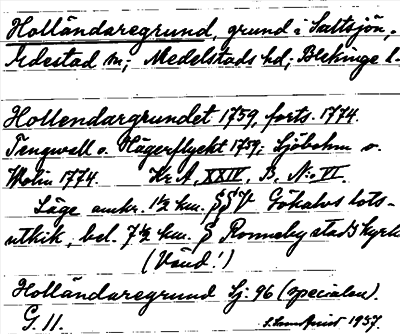 Holländaregrund, grund i Saltsjön,
Edestad sn; Medelstads hd; Blekinge l.
Hollendargrundet 1759, forts. 1774.
Tengwall o. Hägerflycht 1759; Sjöbohm o.
Wolin 1774. Kr A, XXIV, B, No VI.
Läge omkr. 1½ km. Gökalvs lots-
utkik, bel. 7½ km. Ronneby stads kyrk
(Vänd!)
Holländaregrund Sj. 96 (specialen).
G. 11. 1957.